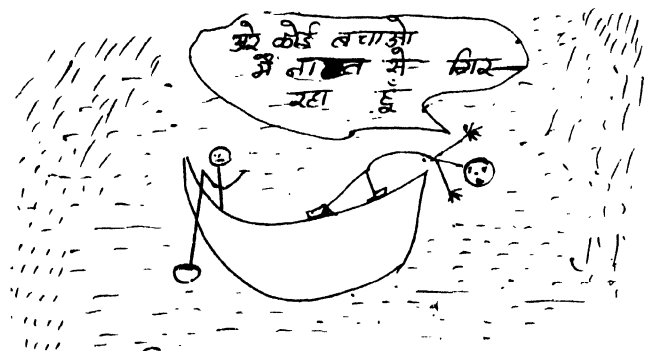 अरे कोई बचाओ
मैं नाव से गिर
रहा हूँ